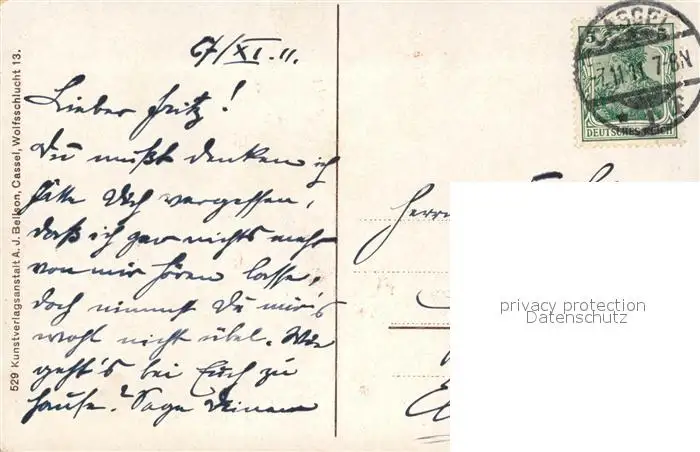 6/XI. 11.
Lieber Fritz!
Du mußt denken ich
hätte Dich vergessen,
daß ich gar nichts mehr
von mir hören lasse,
doch nimmst Du mir's
wohl nicht übel. Wie
geht's bei Euch zu
Hause? Sage Deinem
529 Kunstverlagsanstalt A. J. Bellson, Cassel, Wolfsschlucht 13.
CASSEL
-7.11.11. 7-8N
DEUTSCHES REICH
Herrn
privacy protection
Datenschutz